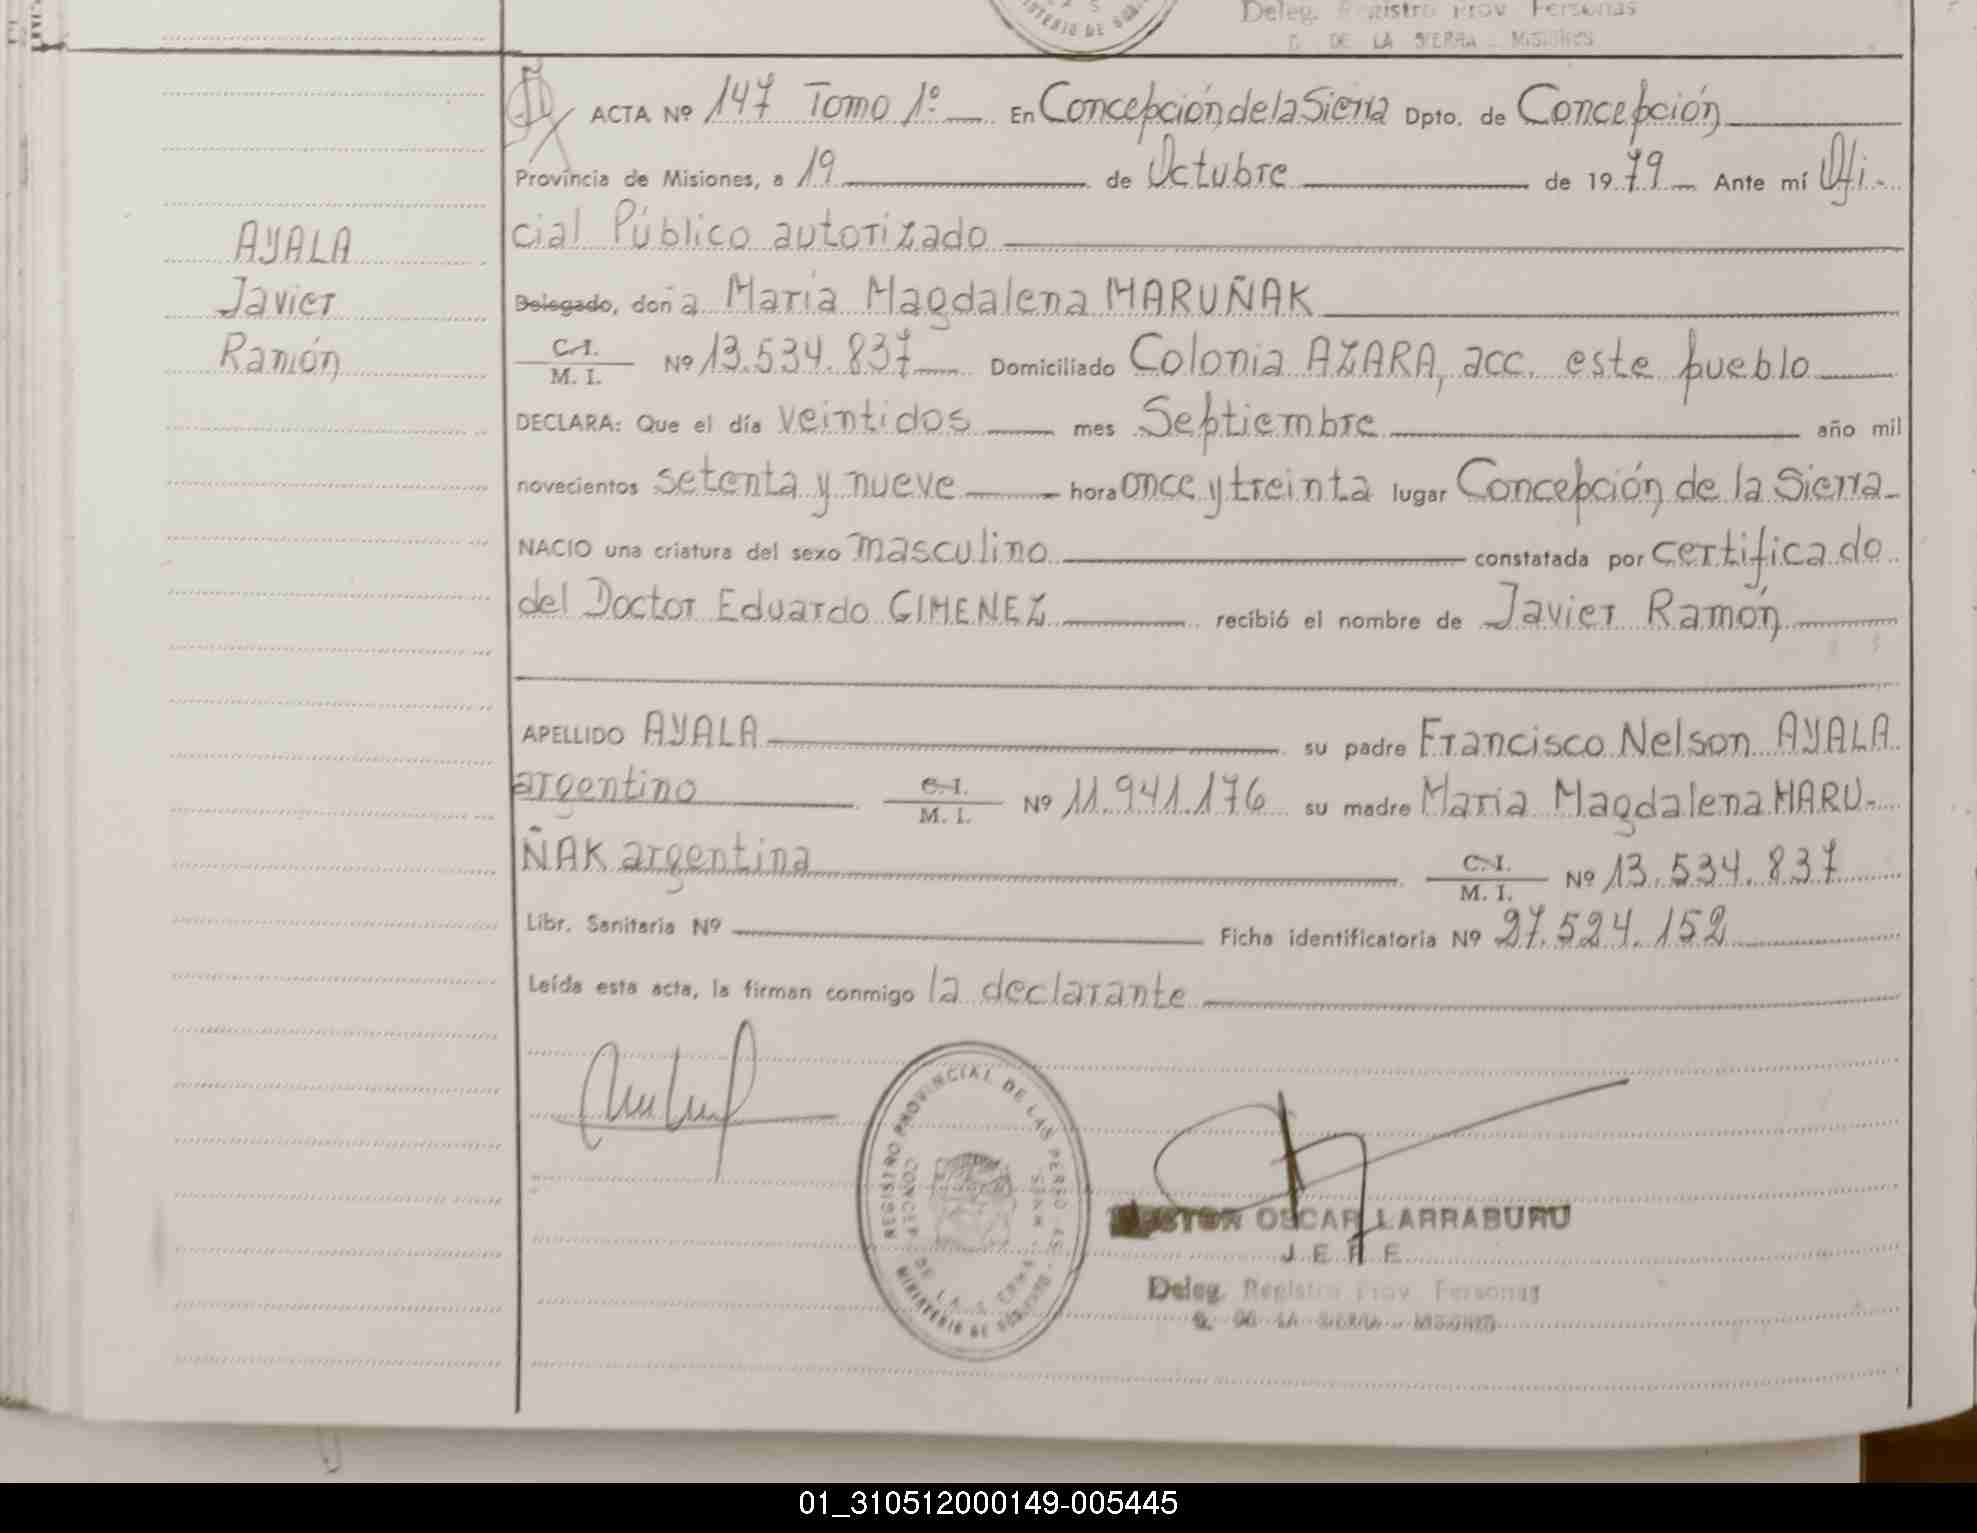 Deleg. Registro Prov Personas
C DE LA SIERRA - MISIONES
ACTA Nº 147 Tomo 1º En Concepción de la Sierra Dpto. de Concepción
Provincia de Misiones, a 19 de Octubre de 1979 Ante mí Ofi-
cial Público autorizado
Delegado, doña María Magdalena MARUÑAK
C.I.
M. I. Nº 13.534.837 Domiciliado Colonia AZARA, acc. este pueblo
DECLARA: Que el día veintidos mes Septiembre año mil
novecientos setenta y nueve hora once y treinta lugar Concepción de la Sierra
NACIO una criatura del sexo masculino constatada por certificado
del Doctor Eduardo GIMENEZ recibió el nombre de Javier Ramón
AYALA
Javier
Ramón
APELLIDO AYALA su padre Francisco Nelson AYALA
argentino C.I.
M. I. Nº 11.941.176 su madre María Magdalena MARU-
ÑAK argentina C.I.
M. I. Nº 13.534.837
Libr. Sanitaria Nº Ficha identificatoria Nº 27.524.152
Leída esta acta, la firman conmigo la declarante
REGISTRO PROVINCIAL DE LAS PERSONAS
MINISTERIO DE GOBIERNO
OSCAR LARRABURU
JEFE
Deleg. Registro Prov Personas
C. DE LA SIERRA - MISIONES
01_310512000149-005445